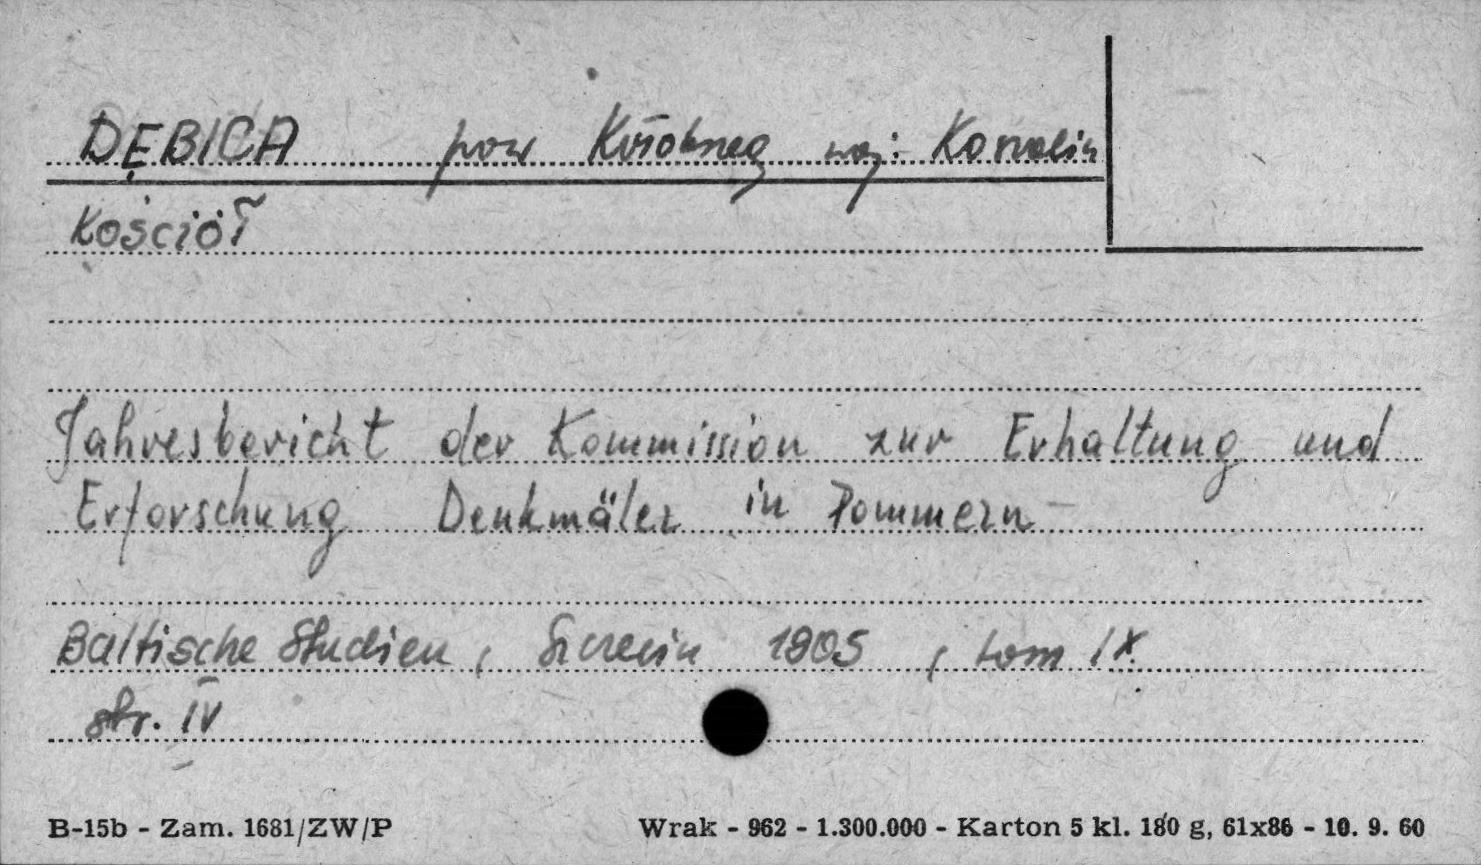 DĘBICA pow Kołobrzeg woj: Koszalin
Kościół
Jahresbericht der Kommission zur Erhaltung und
Erforschung Denkmäler in Pommern
Baltische Studien, Szczecin 1905, tom IX.
str. IV
B-15b - Zam. 1681/ZW/P Wrak - 962 - 1.300.000 - Karton 5 kl. 180 g, 61x86 - 10. 9. 60